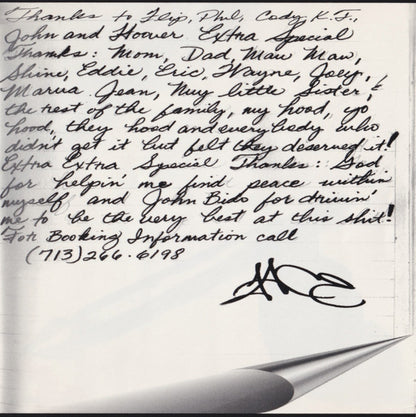 Thanks to Flip, Phil, Cody, K.T.,
John and Hoover Extra Special
Thanks: Mom, Dad, Maw Maw,
Shine, Eddie, Eric, Wayne, Joey,
Marva Jean, Muy little Sister!
the rest of the family, my hood, yo
hood, they hood and everybody who
didn't get it but felt they deserved it!
Extra Extra Special Thanks: God
for helpin' me find peace within
myself, and John Bido for drivin'
me to be the very best at this shit!
For Booking Information call
(713)266-6198